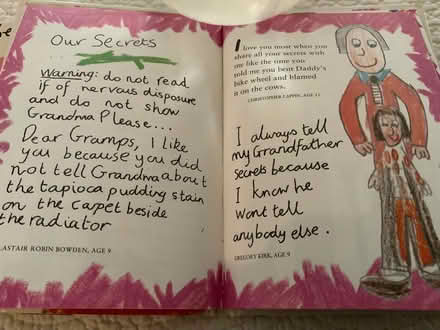 Our Secrets
Warning: do not read
if of nervous disposure
and do not show
Grandma Please...
Dear Gramps, I like
you because you did
not tell Grandma about
the tapioca pudding stain
on the carpet beside
the radiator
ALASTAIR ROBIN BOWDEN, AGE 9
I love you most when you
share all your secrets with
me like the time you
told me you bent Daddy's
bike wheel and blamed
it on the cows.
CHRISTOPHER TAPPIN, AGE 11
I always tell
my Grandfather
secrets because
I know he
wont tell
anybody else.
GREGORY KIRK, AGE 9